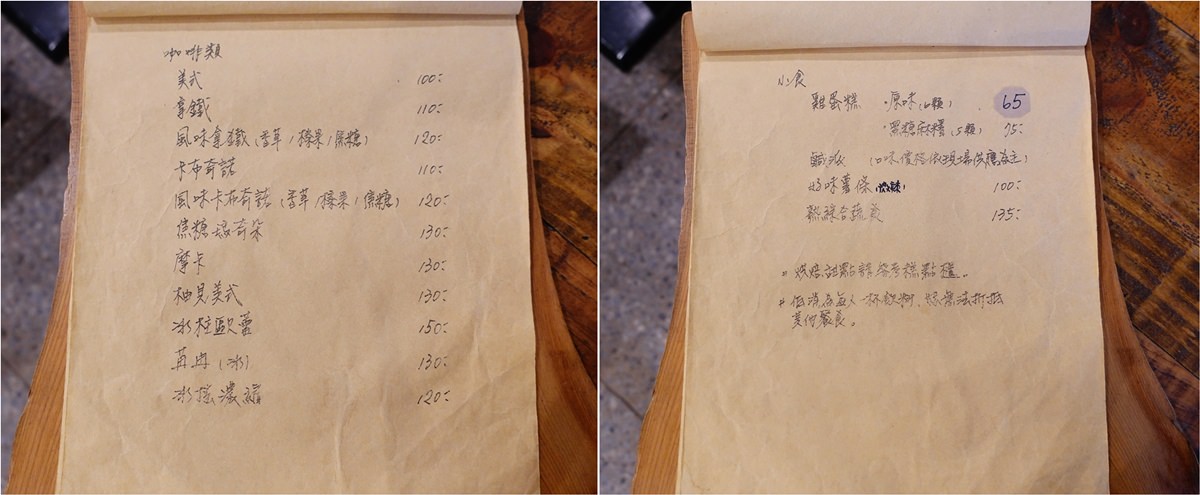 咖啡類
美式 100:
拿鐵 110:
風味拿鐵(香草/榛果/焦糖) 120:
卡布奇諾 110:
風味卡布奇諾(香草/榛果/焦糖) 120:
焦糖瑪奇朵 130:
摩卡 130:
柚見美式 130:
冰柱歐蕾 150:
苒苒(冰) 130:
冰搖濃縮 120:
小食
雞蛋糕 ·原味(6顆) 65
·黑糖麻糬(5顆) 75:
鹹派 (口味價格依現場供應為主)
好味薯條(微辣) 100:
熱綜合蔬食 135:
* 烘焙甜點請參考糕點櫃。
* 低消為每人一杯飲料、恕無法折抵
其他餐食。